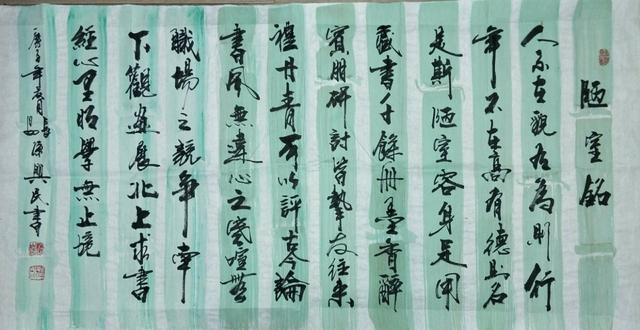 陋室銘
人不在貌有為則行
年不在高有德名
是斯陋室容身足用
藏書千餘冊墨香醉
賓朋研討皆摯友往來
禮丹青可以評古今論
書風無違心之寒喧無
職場之競爭南
下觀畫展北上求書
經心里明學無止境
庚子年春月興民書